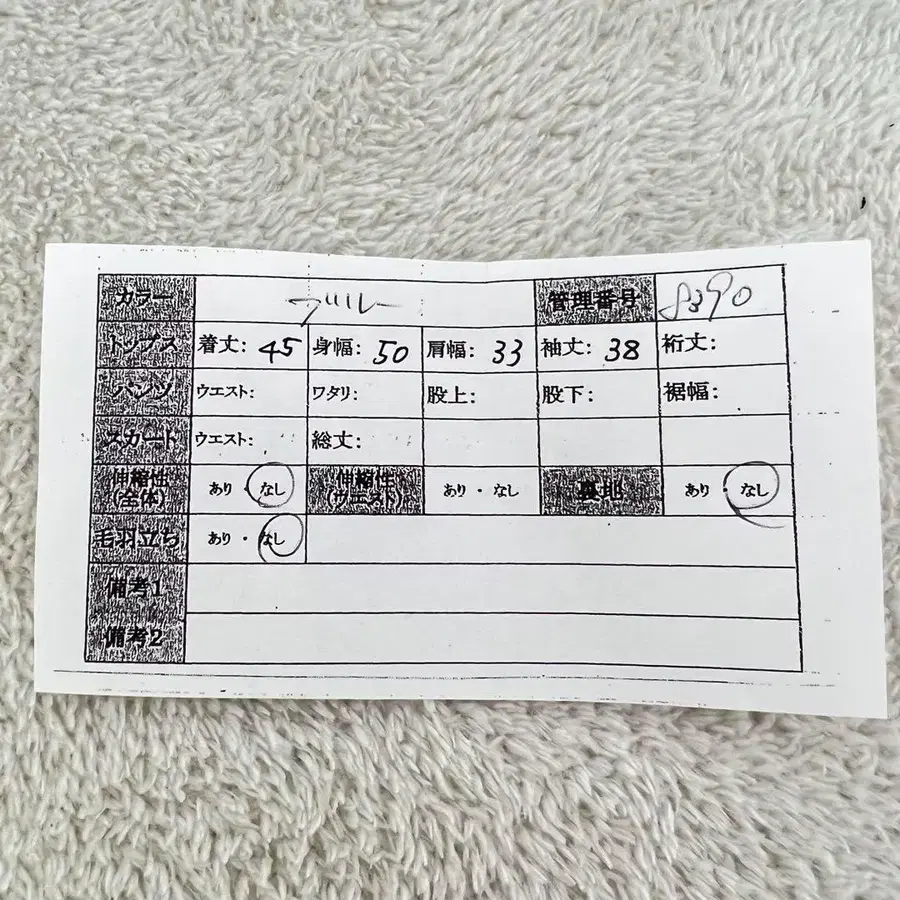 カラー ブルー 管理番号 8390
トップス 着丈: 45 身幅: 50 肩幅: 33 袖丈: 38 裄丈:
パンツ ウエスト: ワタリ: 股上: 股下: 裾幅:
スカート ウエスト: 総丈:
伸縮性(全体) あり・なし 伸縮性(ウエスト) あり・なし 裏地 あり・なし
毛羽立ち あり・なし
備考1
備考2